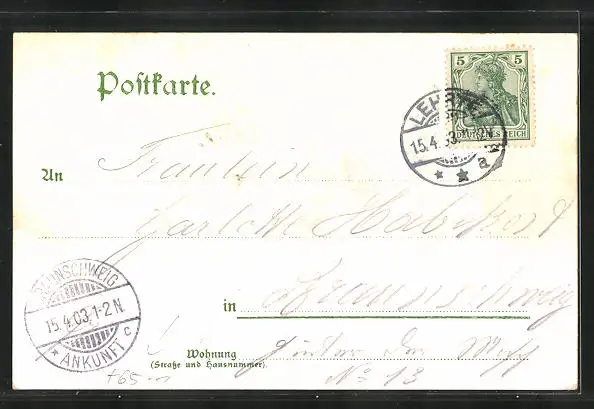 Postkarte.
5 5
DEUTSCHES REICH
LEHRTE
15.4.03.
* * a
An Fräulein
Carlotte Habekost
in Braunschweig
BRAUNSCHWEIG
15.4.03.1-2N.
* ANKUNFT c
Wohnung
(Straße und Hausnummer)
No 13